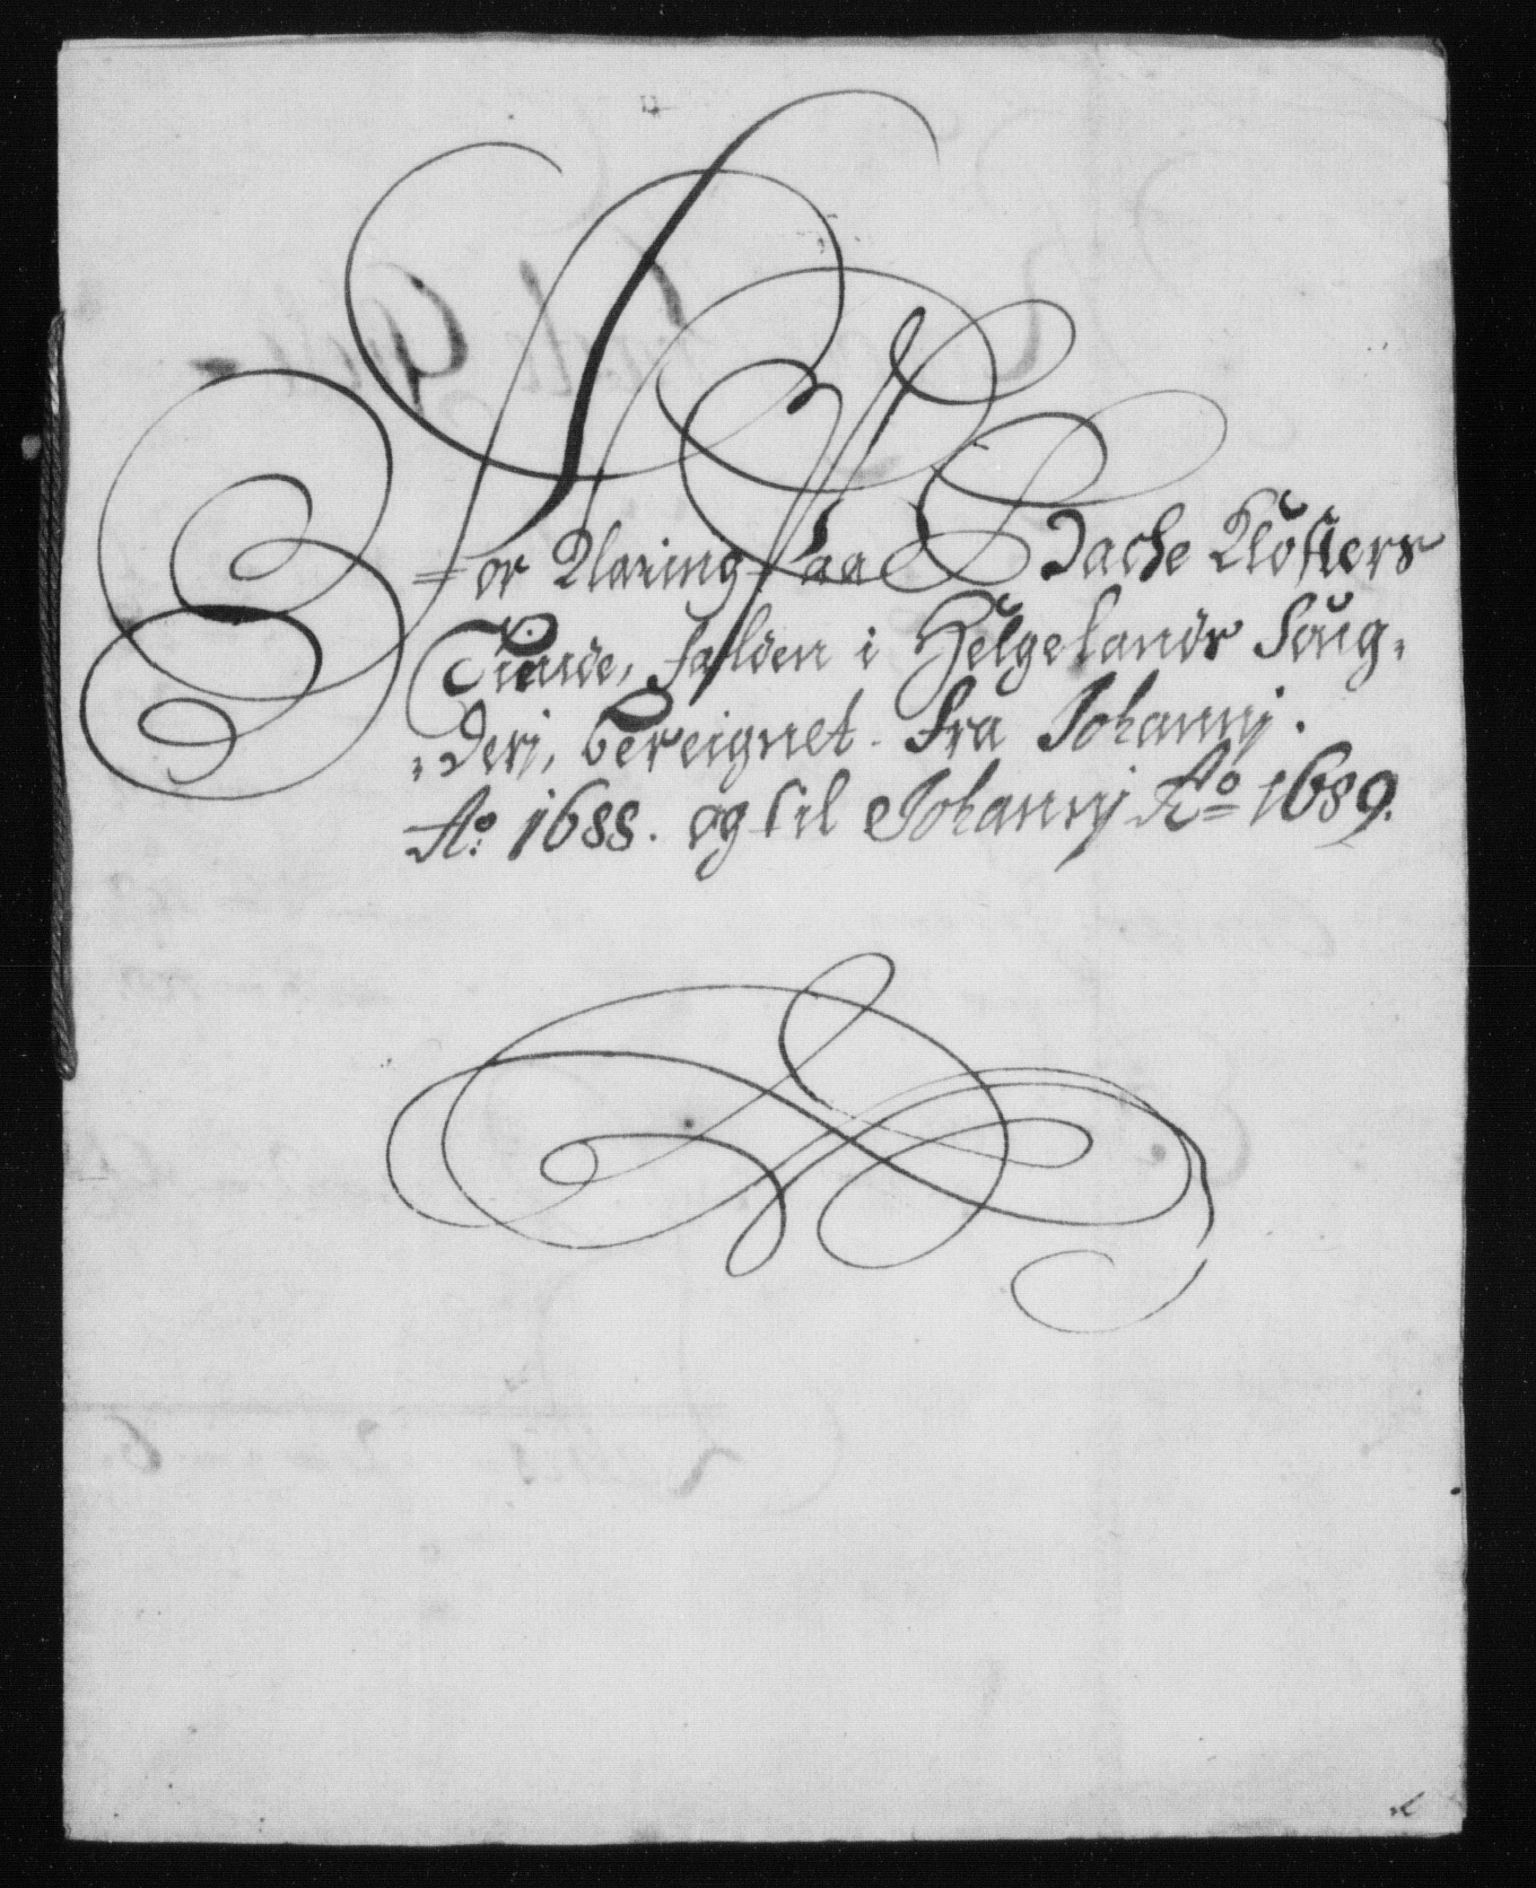 For Klaring paa Backe Klosters
Tiende, falden i Helgelands Foug,
,derj, bereignet fra Johannj.
Ao: 1688. og til Johannj Ao 1689.